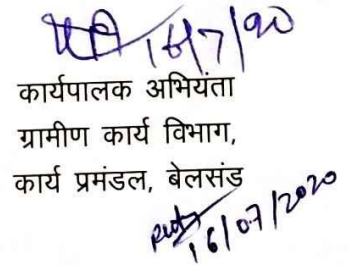 16/7/20
कार्यपालक अभियंता
ग्रामीण कार्य विभाग,
कार्य प्रमंडल, बेलसंड
16/07/2020